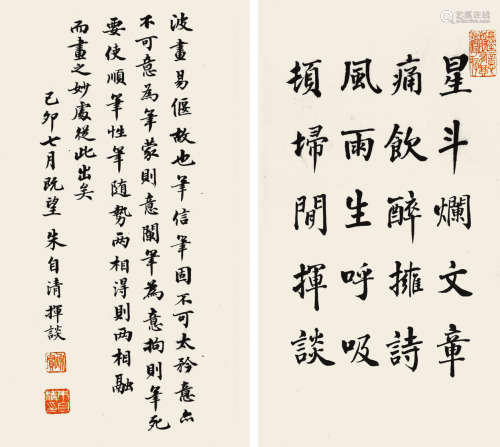 星斗爛文章
痛飲醉擁詩
風雨生呼吸
頃掃閒揮談
波畫易偃故也筆信筆固不可太矜意亦
不可意為筆蒙則意闌筆為意拘則筆死
要使順筆性筆隨勢兩相得則兩相融
而畫之妙處從此出矣
己卯七月既望 朱自清揮談